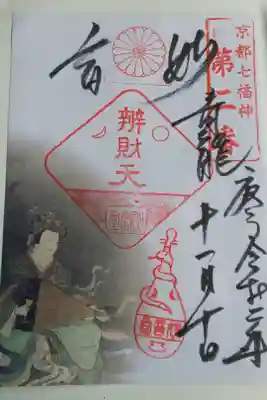 京都七福神
第二番
庚子令和二年
十一月十日
青龍
妙
音
辨財天